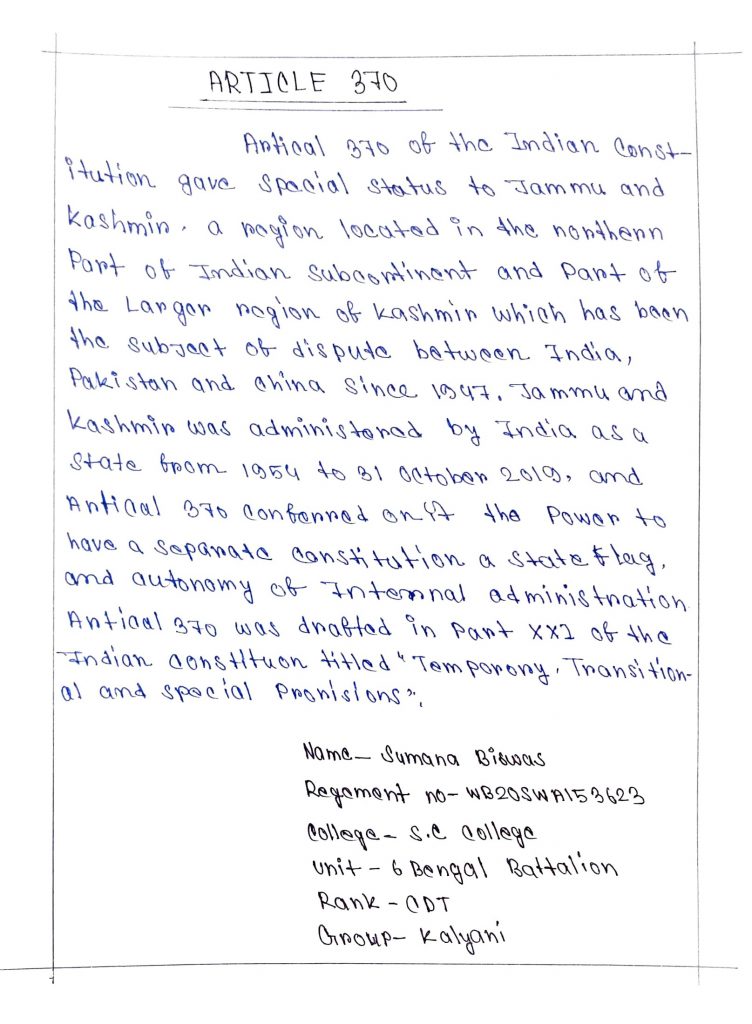 ARTICLE 370
Artical 370 of the Indian Const-
itution gave special status to Jammu and
Kashmir, a region located in the northern
Part of Indian subcontinent and Part of
the Larger region of Kashmir which has been
the subject of dispute between India,
Pakistan and china since 1947. Jammu and
Kashmir was administered by India as a
state from 1954 to 31 October 2019, and
Artical 370 conferred on it the Power to
have a separate constitution a state flag,
and autonomy of Internal administration
Artical 370 was drafted in Part XXI of the
Indian constituon titled "Temporory, Transition-
al and special Provisions".
Name- Sumana Biswas
Regement no- WB20SWA153623
College- S.C College
Unit - 6 Bengal Battalion
Rank - CDT
Group- Kalyani